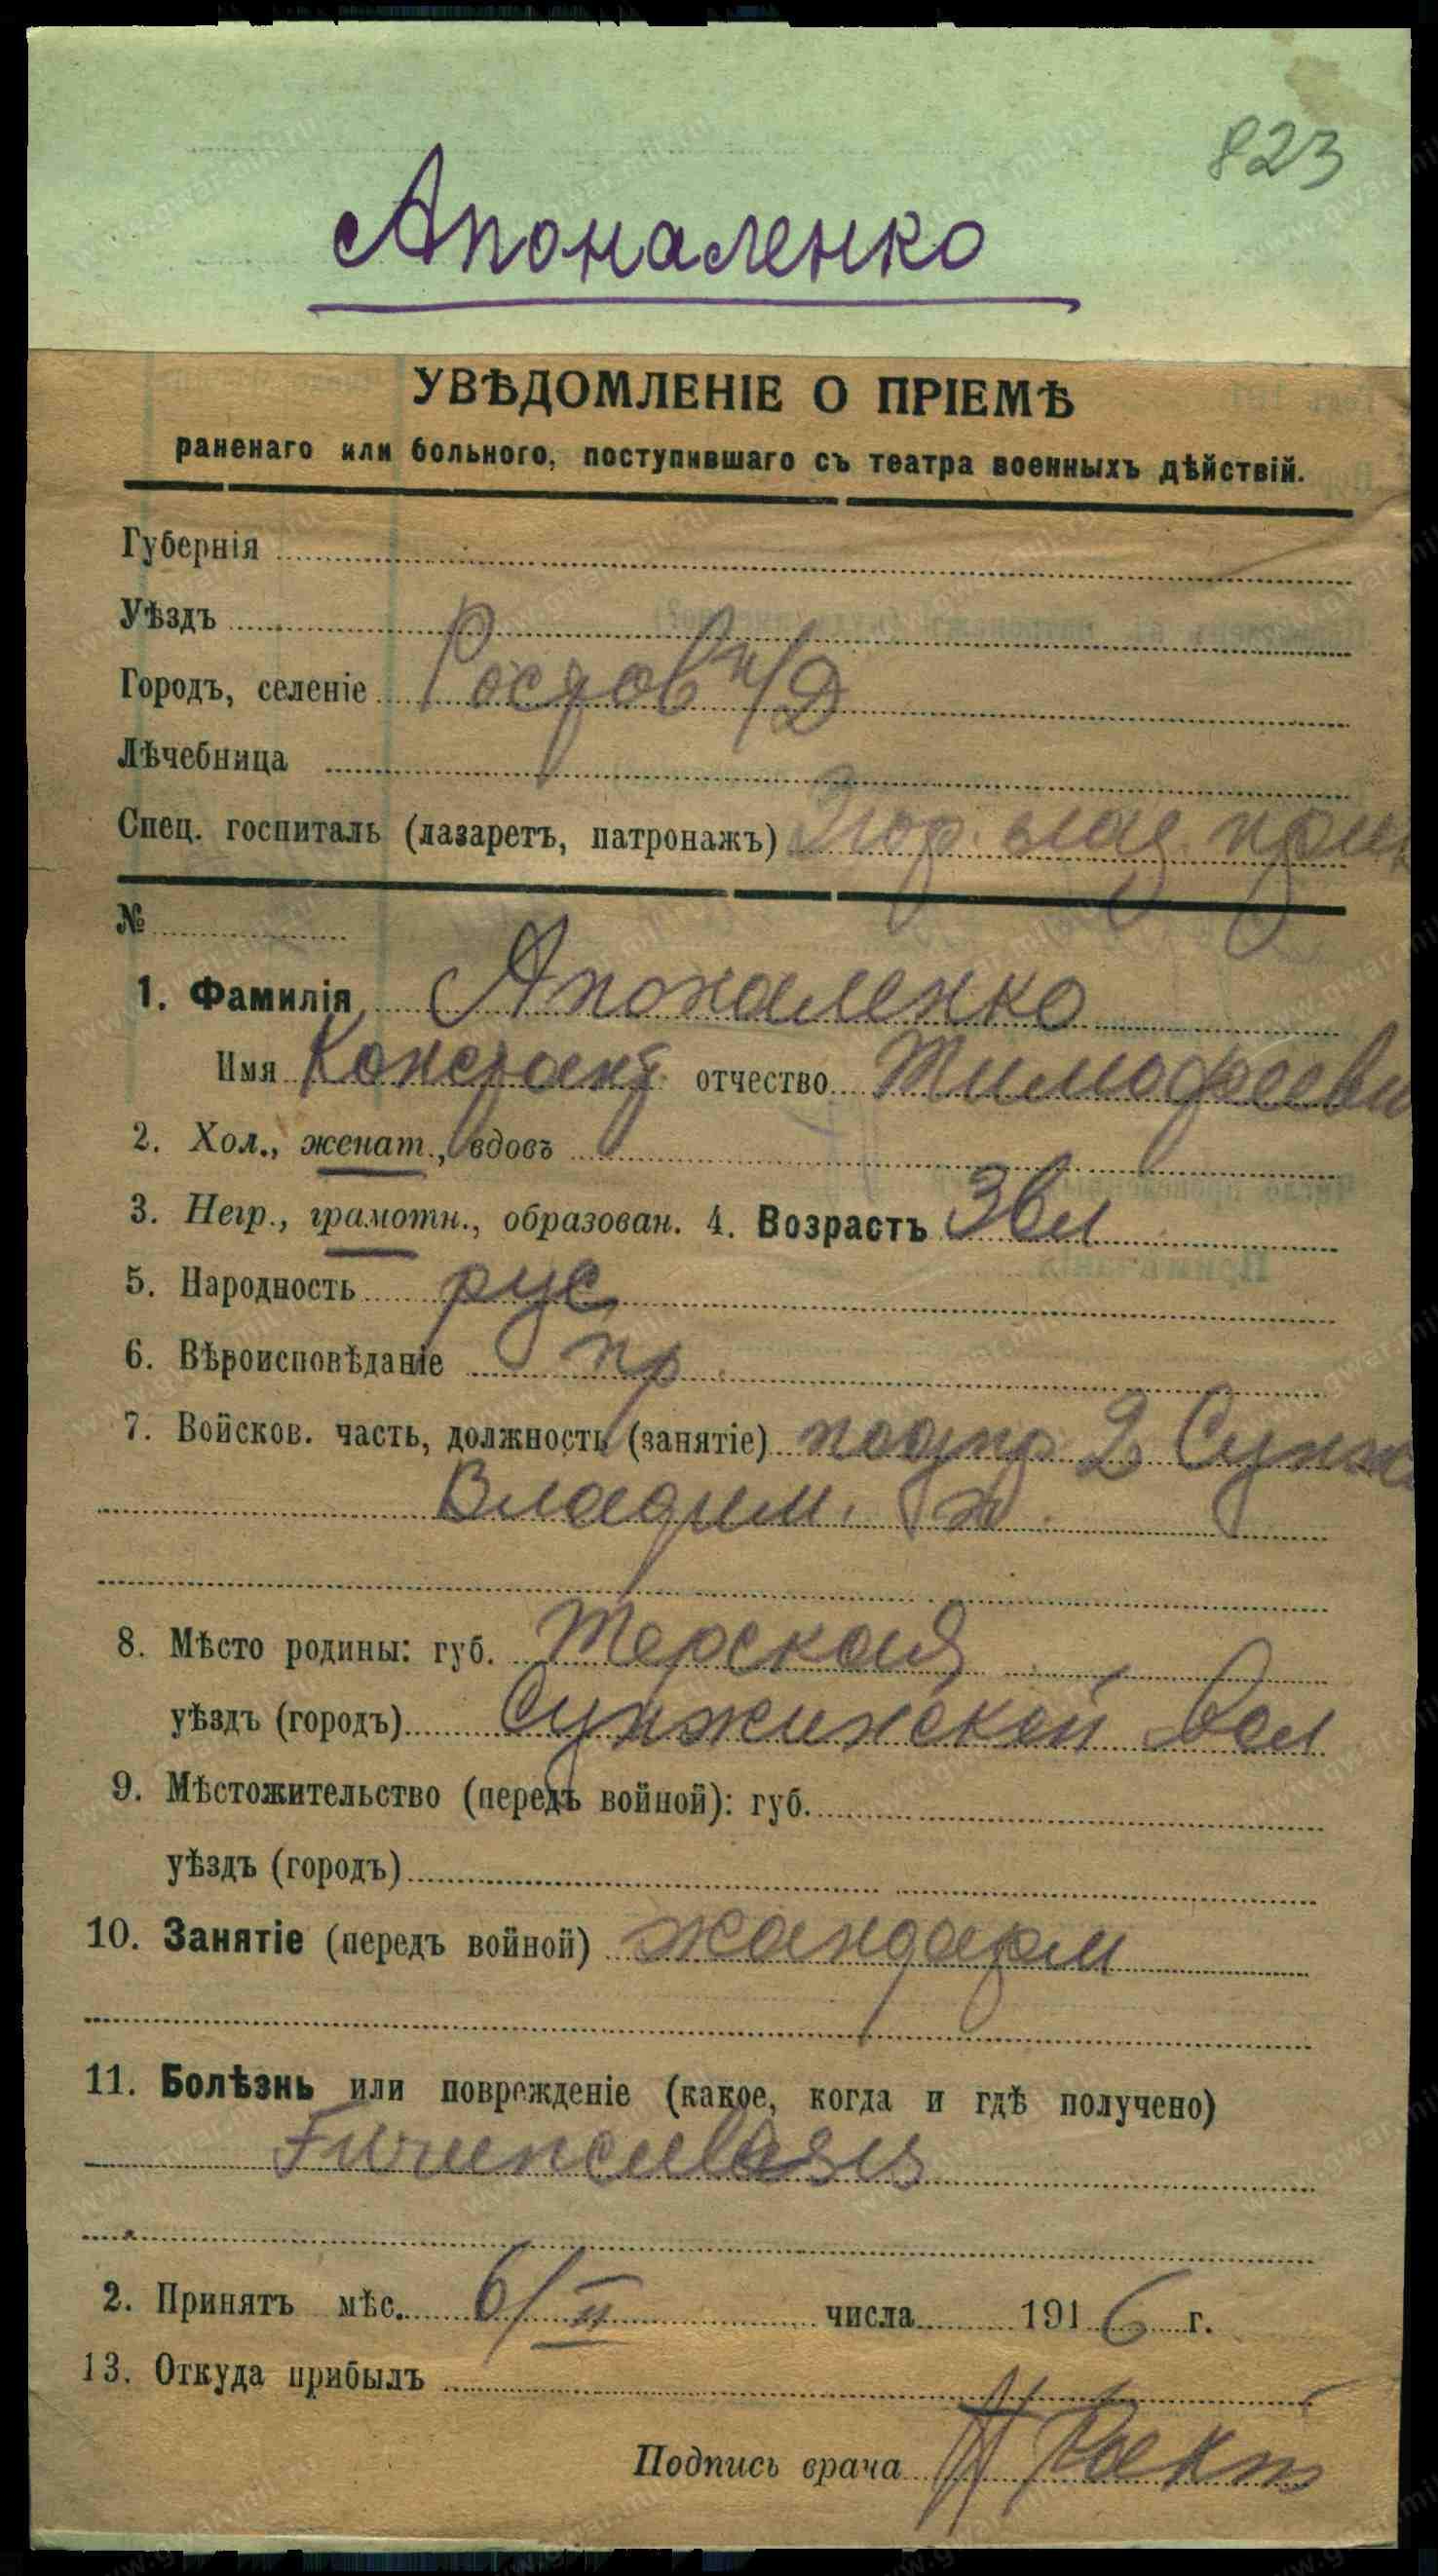 823
Апоналенко
УВѢДОМЛЕНІЕ О ПРІЕМѢ
раненаго или больного, поступившаго съ театра военныхъ дѣйствій.
Губернія
Уѣздъ
Городъ, селеніе Ростов н/Д
Лѣчебница
Спец. госпиталь (лазаретъ, патронажъ)
№
1. Фамилія Апоналенко
Имя Констант отчество Тимофееви
2. Хол., женат., вдовъ
3. Негр., грамотн., образован. 4. Возрастъ 36 л
5. Народность рус
6. Вѣроисповѣданіе пр
7. Войсков. часть, должность (занятіе) подпр 2 Сунж
Владим.
8. Мѣсто родины: губ. Терская
уѣздъ (городъ) Сунжинской
9. Мѣстожительство (передъ войной): губ.
уѣздъ (городъ)
10. Занятіе (передъ войной) жандарм
11. Болѣзнь или поврежденіе (какое, когда и гдѣ получено)
Furunculosis
2. Принятъ мѣс. 6/II числа 1916 г.
13. Откуда прибылъ
Подпись врача